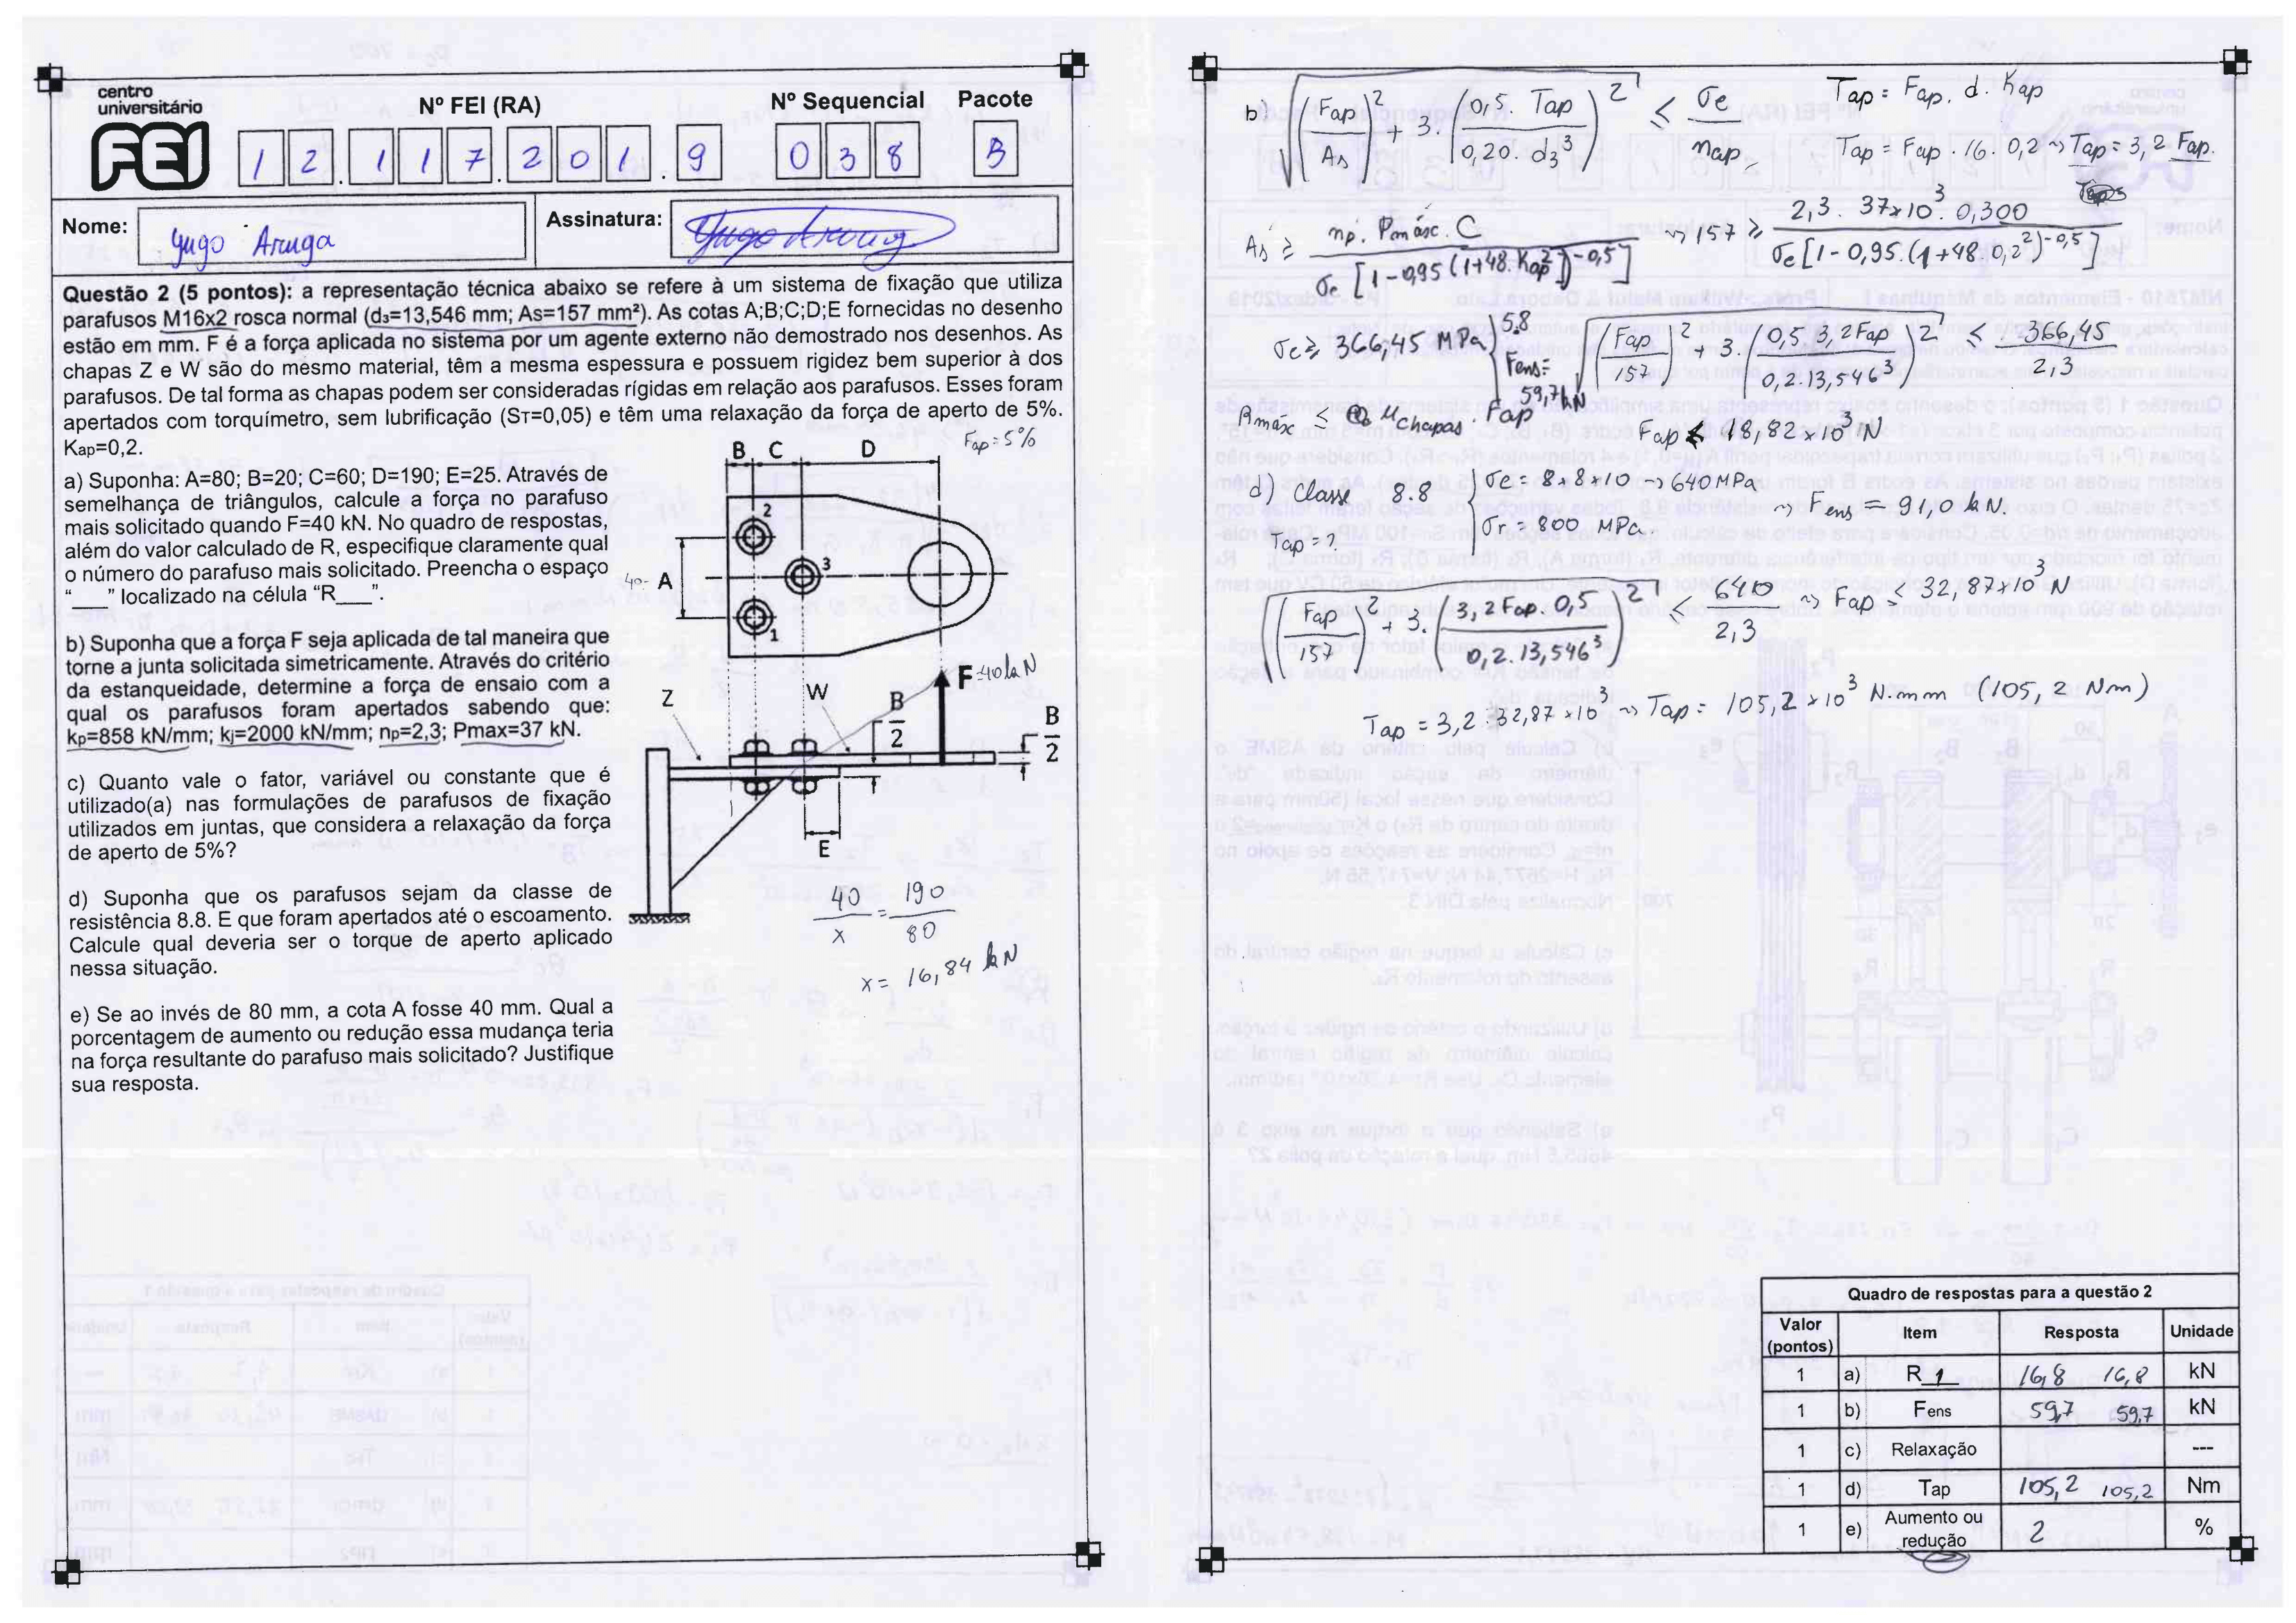 centro
universitário
FEI
Nº FEI (RA)
Nº Sequencial
Pacote
12.117.201.9
038
B
Nome:
Yugo Aruga
Assinatura:
Questão 2 (5 pontos): a representação técnica abaixo se refere à um sistema de fixação que utiliza
parafusos M16x2 rosca normal (d₃=13,546 mm; As=157 mm²). As cotas A;B;C;D;E fornecidas no desenho
estão em mm. F é a força aplicada no sistema por um agente externo não demostrado nos desenhos. As
chapas Z e W são do mesmo material, têm a mesma espessura e possuem rigidez bem superior à dos
parafusos. De tal forma as chapas podem ser consideradas rígidas em relação aos parafusos. Esses foram
apertados com torquímetro, sem lubrificação (Sᴛ=0,05) e têm uma relaxação da força de aperto de 5%.
Kap=0,2.
Fap = 5%
a) Suponha: A=80; B=20; C=60; D=190; E=25. Através de
semelhança de triângulos, calcule a força no parafuso
mais solicitado quando F=40 kN. No quadro de respostas,
além do valor calculado de R, especifique claramente qual
o número do parafuso mais solicitado. Preencha o espaço
"___" localizado na célula "R___".
b) Suponha que a força F seja aplicada de tal maneira que
torne a junta solicitada simetricamente. Através do critério
da estanqueidade, determine a força de ensaio com a
qual os parafusos foram apertados sabendo que:
kp=858 kN/mm; kj=2000 kN/mm; np=2,3; Pmax=37 kN.
c) Quanto vale o fator, variável ou constante que é
utilizado(a) nas formulações de parafusos de fixação
utilizados em juntas, que considera a relaxação da força
de aperto de 5%?
d) Suponha que os parafusos sejam da classe de
resistência 8.8. E que foram apertados até o escoamento.
Calcule qual deveria ser o torque de aperto aplicado
nessa situação.
e) Se ao invés de 80 mm, a cota A fosse 40 mm. Qual a
porcentagem de aumento ou redução essa mudança teria
na força resultante do parafuso mais solicitado? Justifique
sua resposta.
B C D
2
3
1
40- A
F=40kN
Z
W
B/2
B/2
E
40/x = 190/80
x = 16,84 kN
b) √((Fap/As)² + 3.(0,5. Tap/0,20. d₃³)²) ≤ σe/nap
Tap = Fap. d. Kap
Tap = Fap . 16. 0,2 ⇝ Tap = 3,2 Fap.
As ≥ np. Pmáx. C/σe [1-0,95(1+48.Kap²)^-0,5] ⇝ 157 ≥ 2,3. 37x10³. 0,300/σe[1-0,95.(1+48.0,2²)^-0,5]
σe ≥ 366,45 MPa } 5.8 Fens = 59,7kN
√((Fap/157)² + 3.(0,5.3,2Fap/0,2.13,546³)²) ≤ 366,45/2,3
Pmáx ≤ μchapas. Fap
Fap < 18,82x10³ N
d) Classe 8.8 { σe = 8x8x10 ⇝ 640MPa
σr = 800 MPa.
⇝ Fens = 91,0 kN.
Tap = ?
√((Fap/157)² + 3.(3,2Fap.0,5/0,2.13,546³)²) ≤ 640/2,3 ⇝ Fap < 32,87x10³ N
Tap = 3,2.32,87x10³ ⇝ Tap = 105,2x10³ N.mm (105,2 Nm)
Quadro de respostas para a questão 2
Valor (pontos) Item Resposta Unidade
1 a) R_1_ 16,8 16,8 kN
1 b) Fens 59,7 59,7 kN
1 c) Relaxação ---
1 d) Tap 105,2 105,2 Nm
1 e) Aumento ou redução 2 %